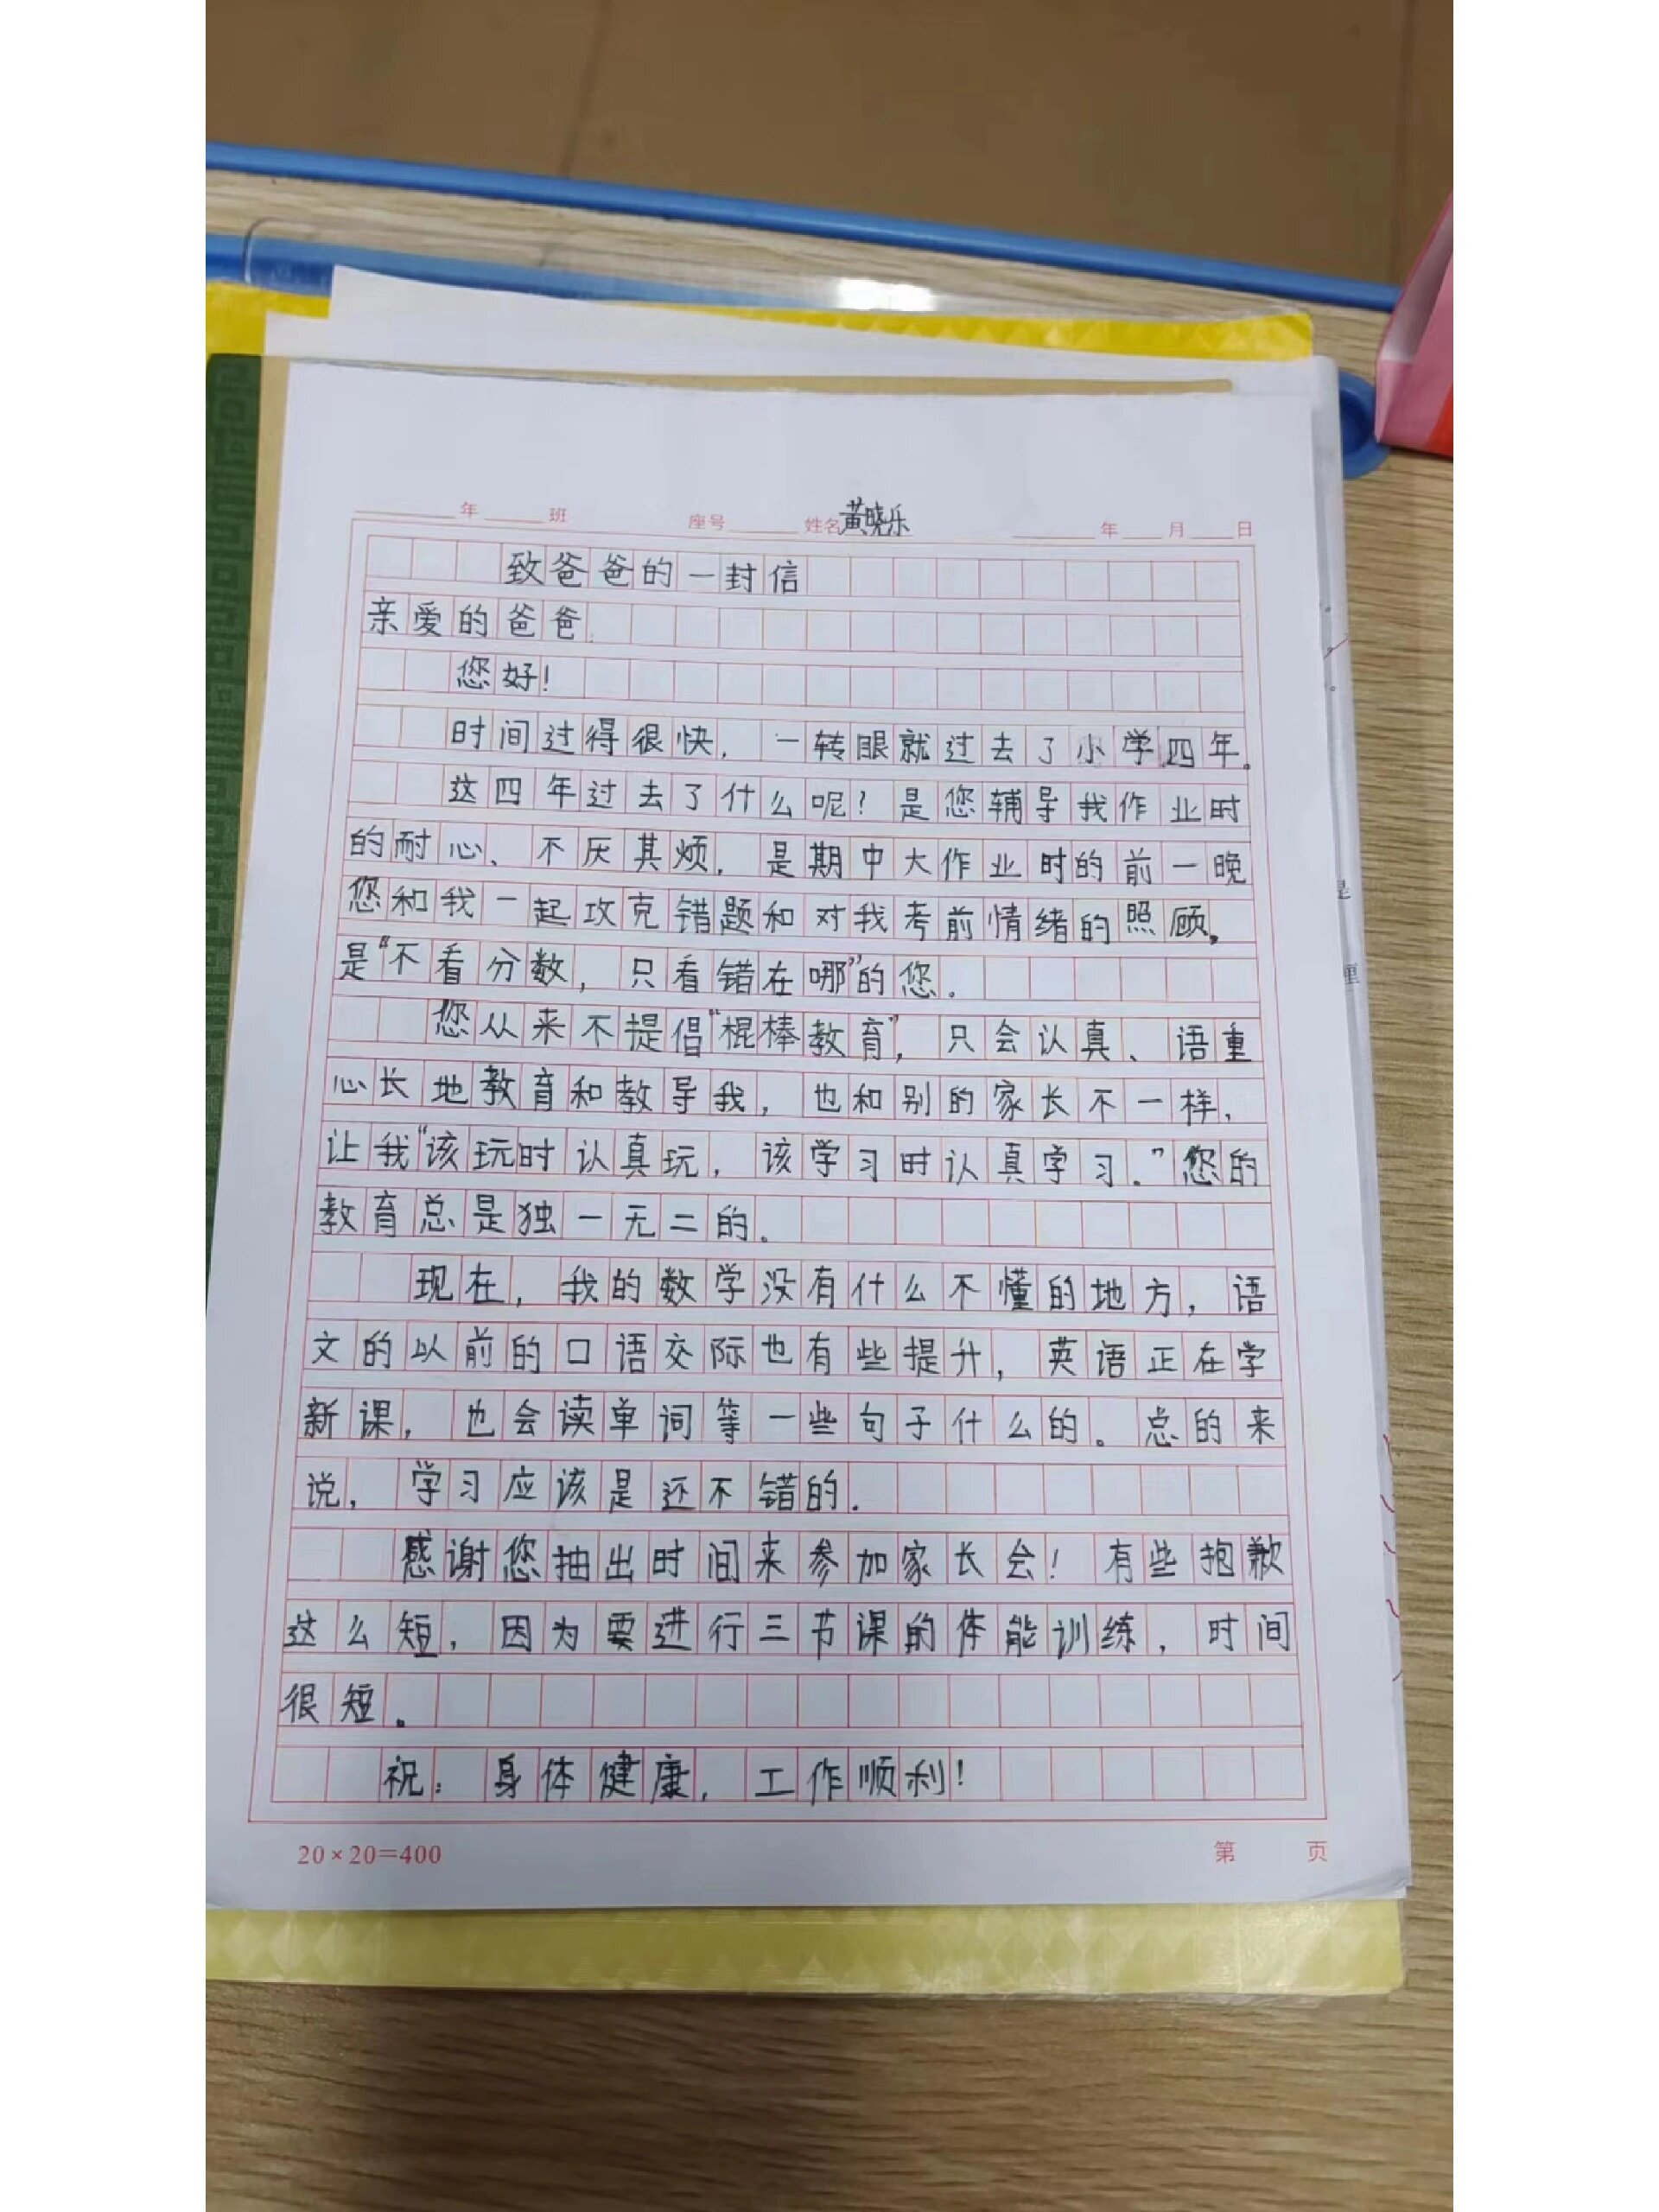 年 班 座号 姓名 黄晓乐 年 月 日
致爸爸的一封信
亲爱的爸爸:
您好!
时间过得很快,一转眼就过去了小学四年。
这四年过去了什么呢?是您辅导我作业时
的耐心、不厌其烦,是期中大作业时的前一晚
您和我一起攻克错题和对我考前情绪的照顾,
是“不看分数,只看错在哪”的您.
您从来不提倡“棍棒教育”,只会认真、语重
心长地教育和教导我,也和别的家长不一样,
让我“该玩时认真玩,该学习时认真学习.”您的
教育总是独一无二的.
现在,我的数学没有什么不懂的地方,语
文的以前的口语交际也有些提升,英语正在学
新课,也会读单词等一些句子什么的。总的来
说,学习应该是还不错的.
感谢您抽出时间来参加家长会!有些抱歉
这么短,因为要进行三节课的体能训练,时间
很短。
祝:身体健康,工作顺利!
20×20=400 第 页